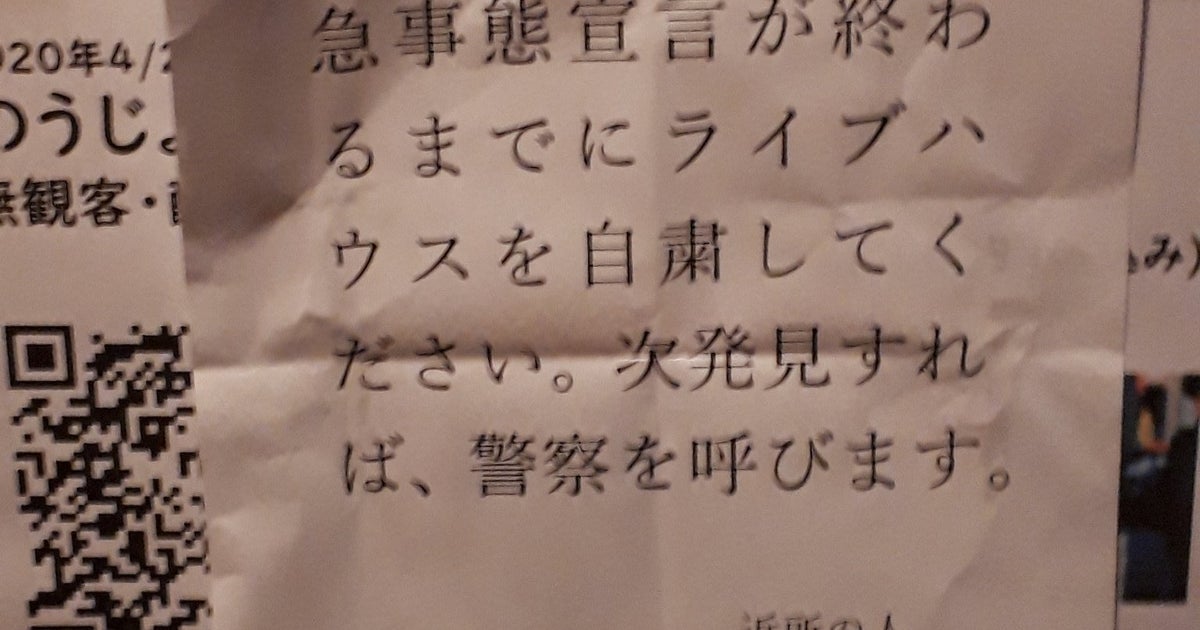 急事態宣言が終わ
るまでにライブハ
ウスを自粛してく
ださい。次発見すれ
ば、警察を呼びます。
近所の人
020年4/2
のうじょ
無観客・
み)